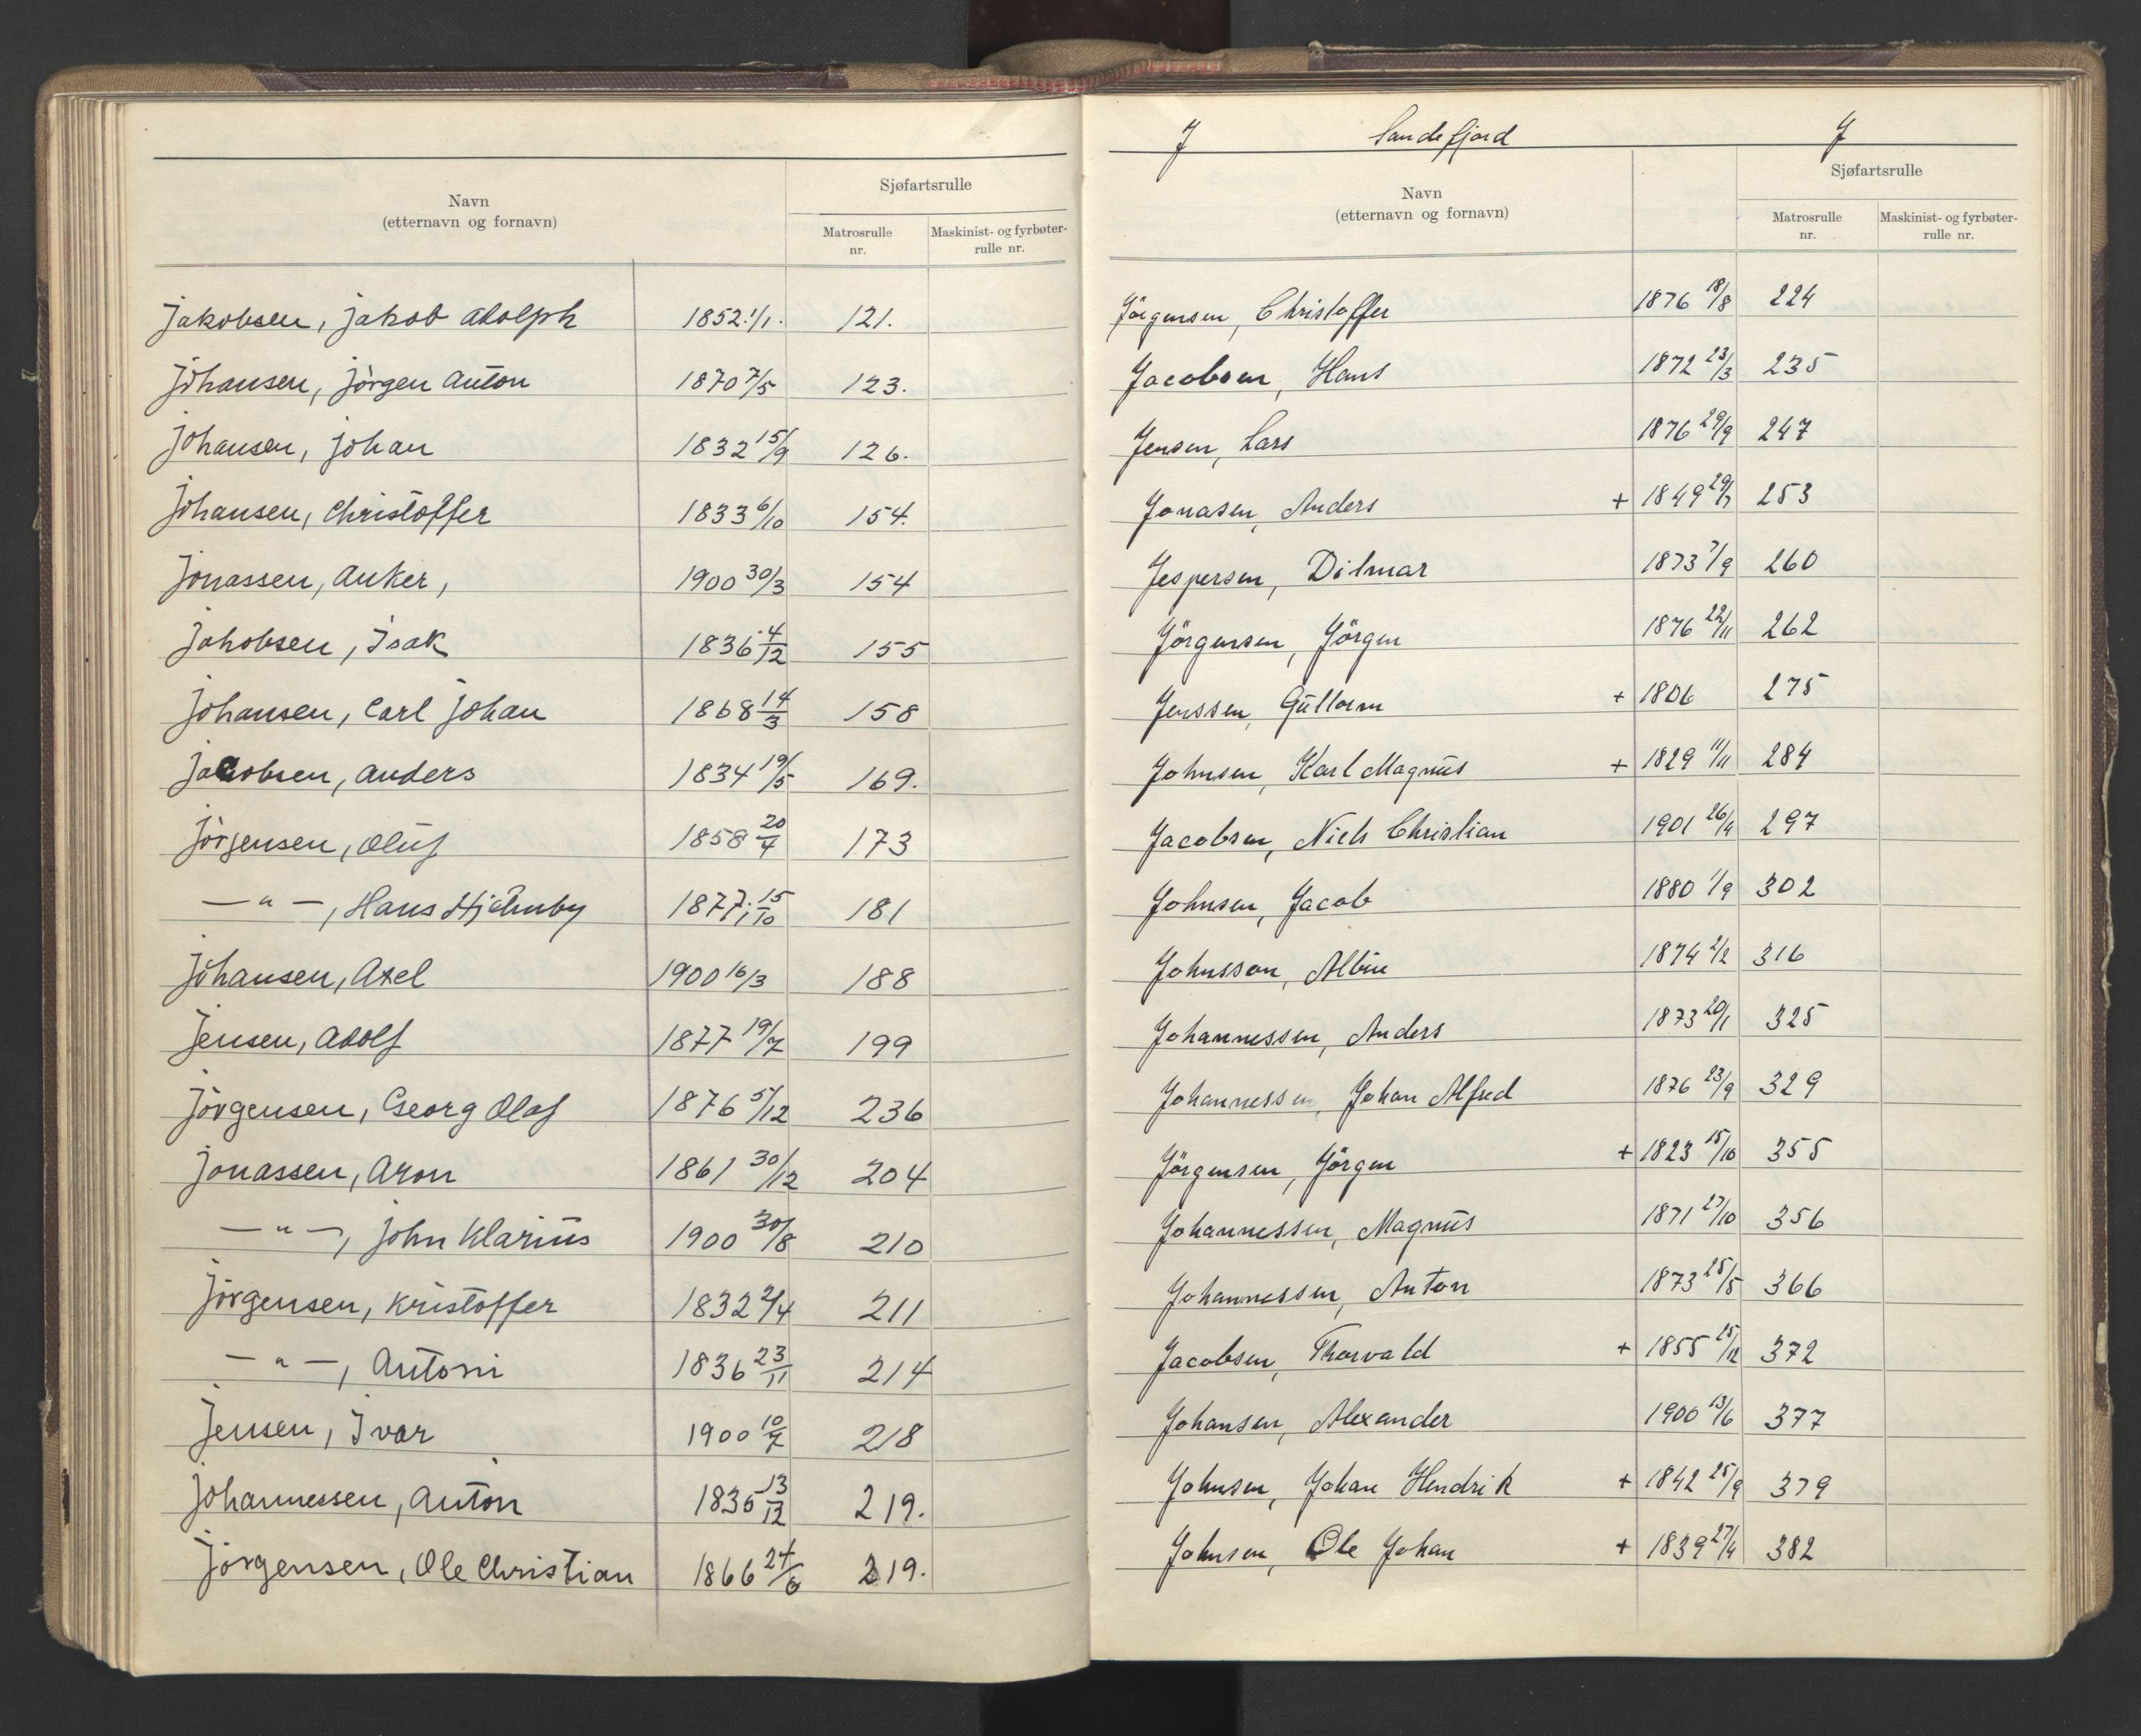 Navn
(etternavn og fornavn)
Sjøfartsrulle
Matrosrulle nr.
Maskinist- og fyrbøter-rulle nr.
Jakobsen, Jakob Adolph 1852 1/1. 121.
Johansen, Jörgen Anton 1870 7/5 123.
Johansen, Johan 1832 15/9 126.
Johansen, Christoffer 1833 6/10 154.
Jonassen, Anker, 1900 30/3 154
Jahobsen, Isak 1836 4/12 155
Johansen, Carl Johan 1868 14/3 158
Jacobsen, Anders 1834 19/5 169.
Jörgensen, Oluf 1858 20/4 173
—"—, Hans 1877 15/10 181
Johansen, Axel 1900 16/3 188
Jensen, Adolf 1877 19/7 199
Jörgensen, Georg Olaf 1876 5/12 236
Jonassen, Aron 1861 30/12 204
—"—, John Klarius 1900 30/8 210
Jörgensen, Kristoffer 1832 2/4 211
—"—, Antoni 1836 23/11 214
Jensen, Ivar 1900 10/7 218
Johannessen, Anton 13/12 219.
Jörgensen, Ole Christian 1866 24/6 219.
J Sandefjord J
Navn
(etternavn og fornavn)
Sjøfartsrulle
Matrosrulle nr.
Maskinist- og fyrbøter-rulle nr.
Jörgensen, Christoffer 1876 18/8 224
Jacobsen, Hans 1872 23/3 235
Jensen, Lars 1876 29/9 247
Jonasen, Anders + 1849 29/7 253
Jespersen, Dilmar 1873 7/9 260
Jörgensen, Jörgen 1876 22/11 262
Jenssen, Gullorm + 1806 275
Johnsen, Karl Magnus + 1829 11/11 284
Jacobsen, Niels Christian 1901 26/4 297
Johnsen, Jacob 1880 1/9 302
Johnsson, Albin 1874 2/2 316
Johannessen, Anders 1873 20/1 325
Johannessen, Johan Alfred 1876 23/9 329
Jörgensen, Jörgen + 1823 15/10 355
Johannessen, Magnus 1871 27/10 356
Johannessen, Anton 1873 25/5 366
Jacobsen, Thorvald + 1855 15/12 372
Johansen, Alexander 1900 13/6 377
Johnsen, Johan Hendrik + 1842 25/9 379
Johnsen, Ole Johan + 1839 27/4 382